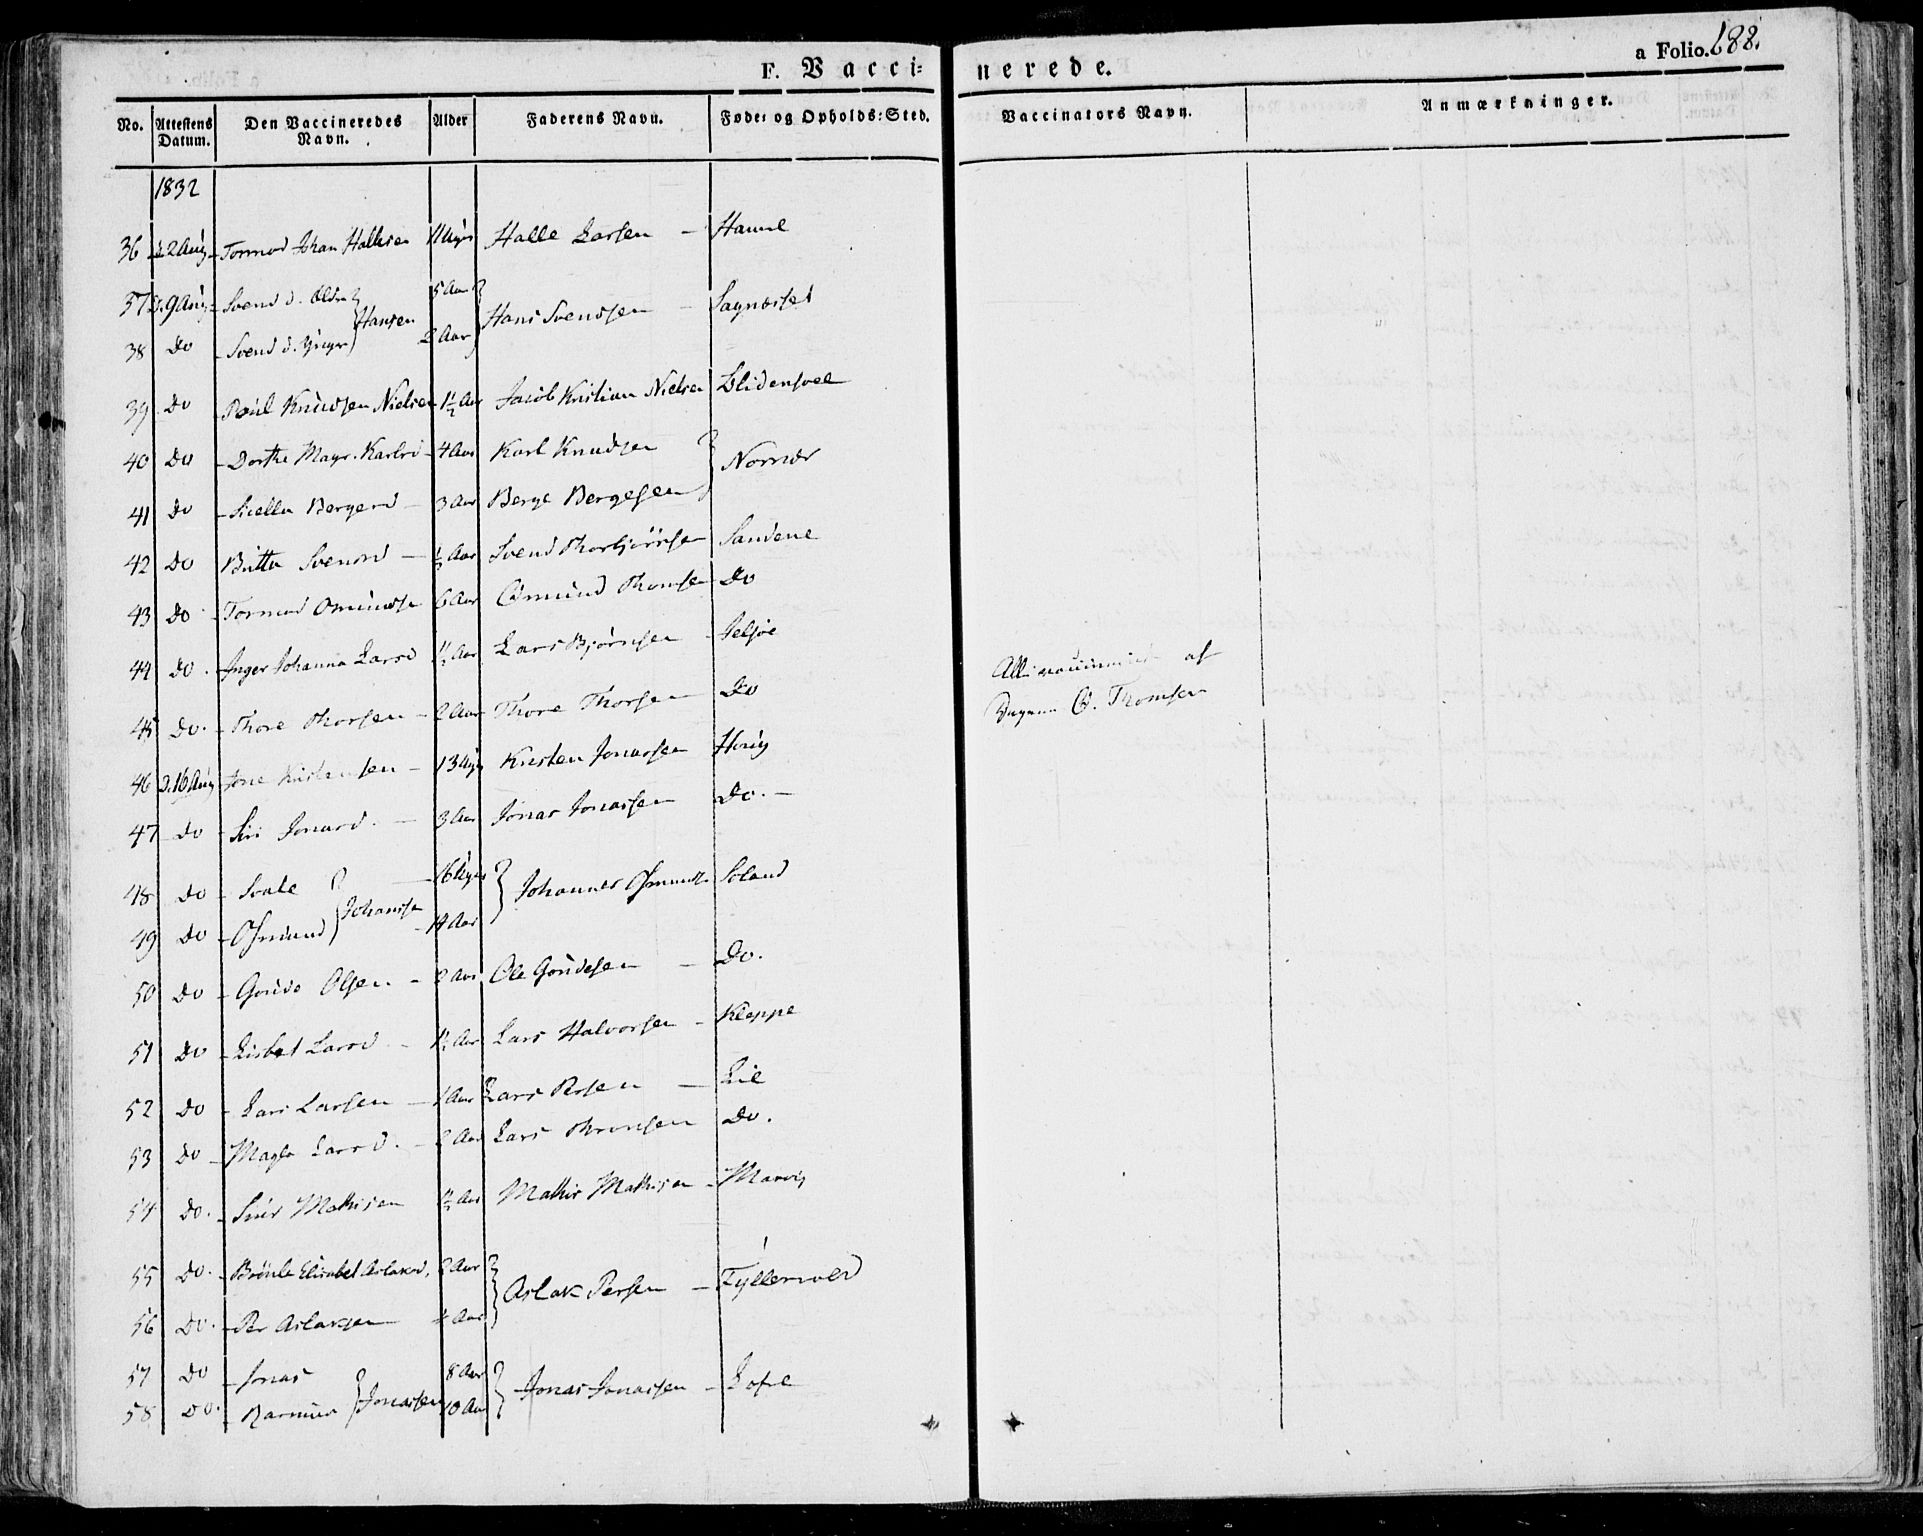 a Folio. 188.
F. Vaccinerede.
No. Attestens Datum. Den Vaccineredes Navn. Alder Faderens Navn. Føde: og Opholds: Sted. Vaccinators Navn. Anmærkninger.
1832
36 d. 2 Aug. Tormod Johan Hallesen 11 Uger Halle Larsen – Haune
37 d. 9 Aug. Svend d. Ældre } Hansen 5 Aar } Hans Svendsen – Sagnæsset
38 Do Svend d. Yngre 2 Aar
39 Do Poul Knudsen Nielsen 1½ Aar Jacob Kristian Nielsen
40 Do Dorthe Magr. Karlsd – 4 Aar Karl Knudsen } Nornær
41 Do Berged – 3 Aar Berge Bergesen
42 Do Britta Svensd – ½ Aar Svend Thorbjørnsen Sandene
43 Do Tormod Omundsen 6 Aar Omund Thomsen Do
44 Do. Inger Johanna Larsd 1½ Aar Lars Bjørnsen Jelsøe
Alle vaccinerede af
45 Do. Thore Thorsen – 2 Aar Thore Thorsen Do
O. Thomsen
46 D. 16 Aug Jone Kristensen – 13 Uger Kristen Jonassen Hovig
47 Do Siri Jonasd. – 3 Aar Jonas Jonassen Do. –
48 Do } Johannsen – 16 Uger } Johannes Osmunds. Soland
49 Do Osmund – 14 Aar
50 Do Goude Olsen – 2 Aar Ole Goudesen – Do.
51 Do Lisbet Larsd – 1½ Aar Lars Halvorsen – Kleppe
52 Do Lars Larsen – 1 Aar Lars Persen – Lie
53 Do – Larsd. – 2 Aar Lars Do.
54 Do. Mathisen 1½ Aar Mathis Mathisen – Marvig
55 Do. Elisabet Aslaksd. 2 Aar } Aslak Persen –
56 Do. Per Aslaksen ½ Aar
57 Do Jonas } Jonassen 8 Aar } Jonas Jonassen –
58 Do. Rasmus 10 Aar